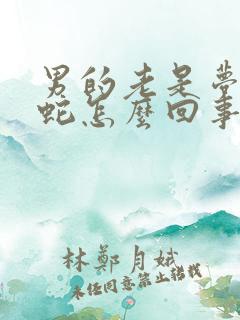 男的老是夢
蛇怎麼回事
林鄭月娥
未经同意禁止转载